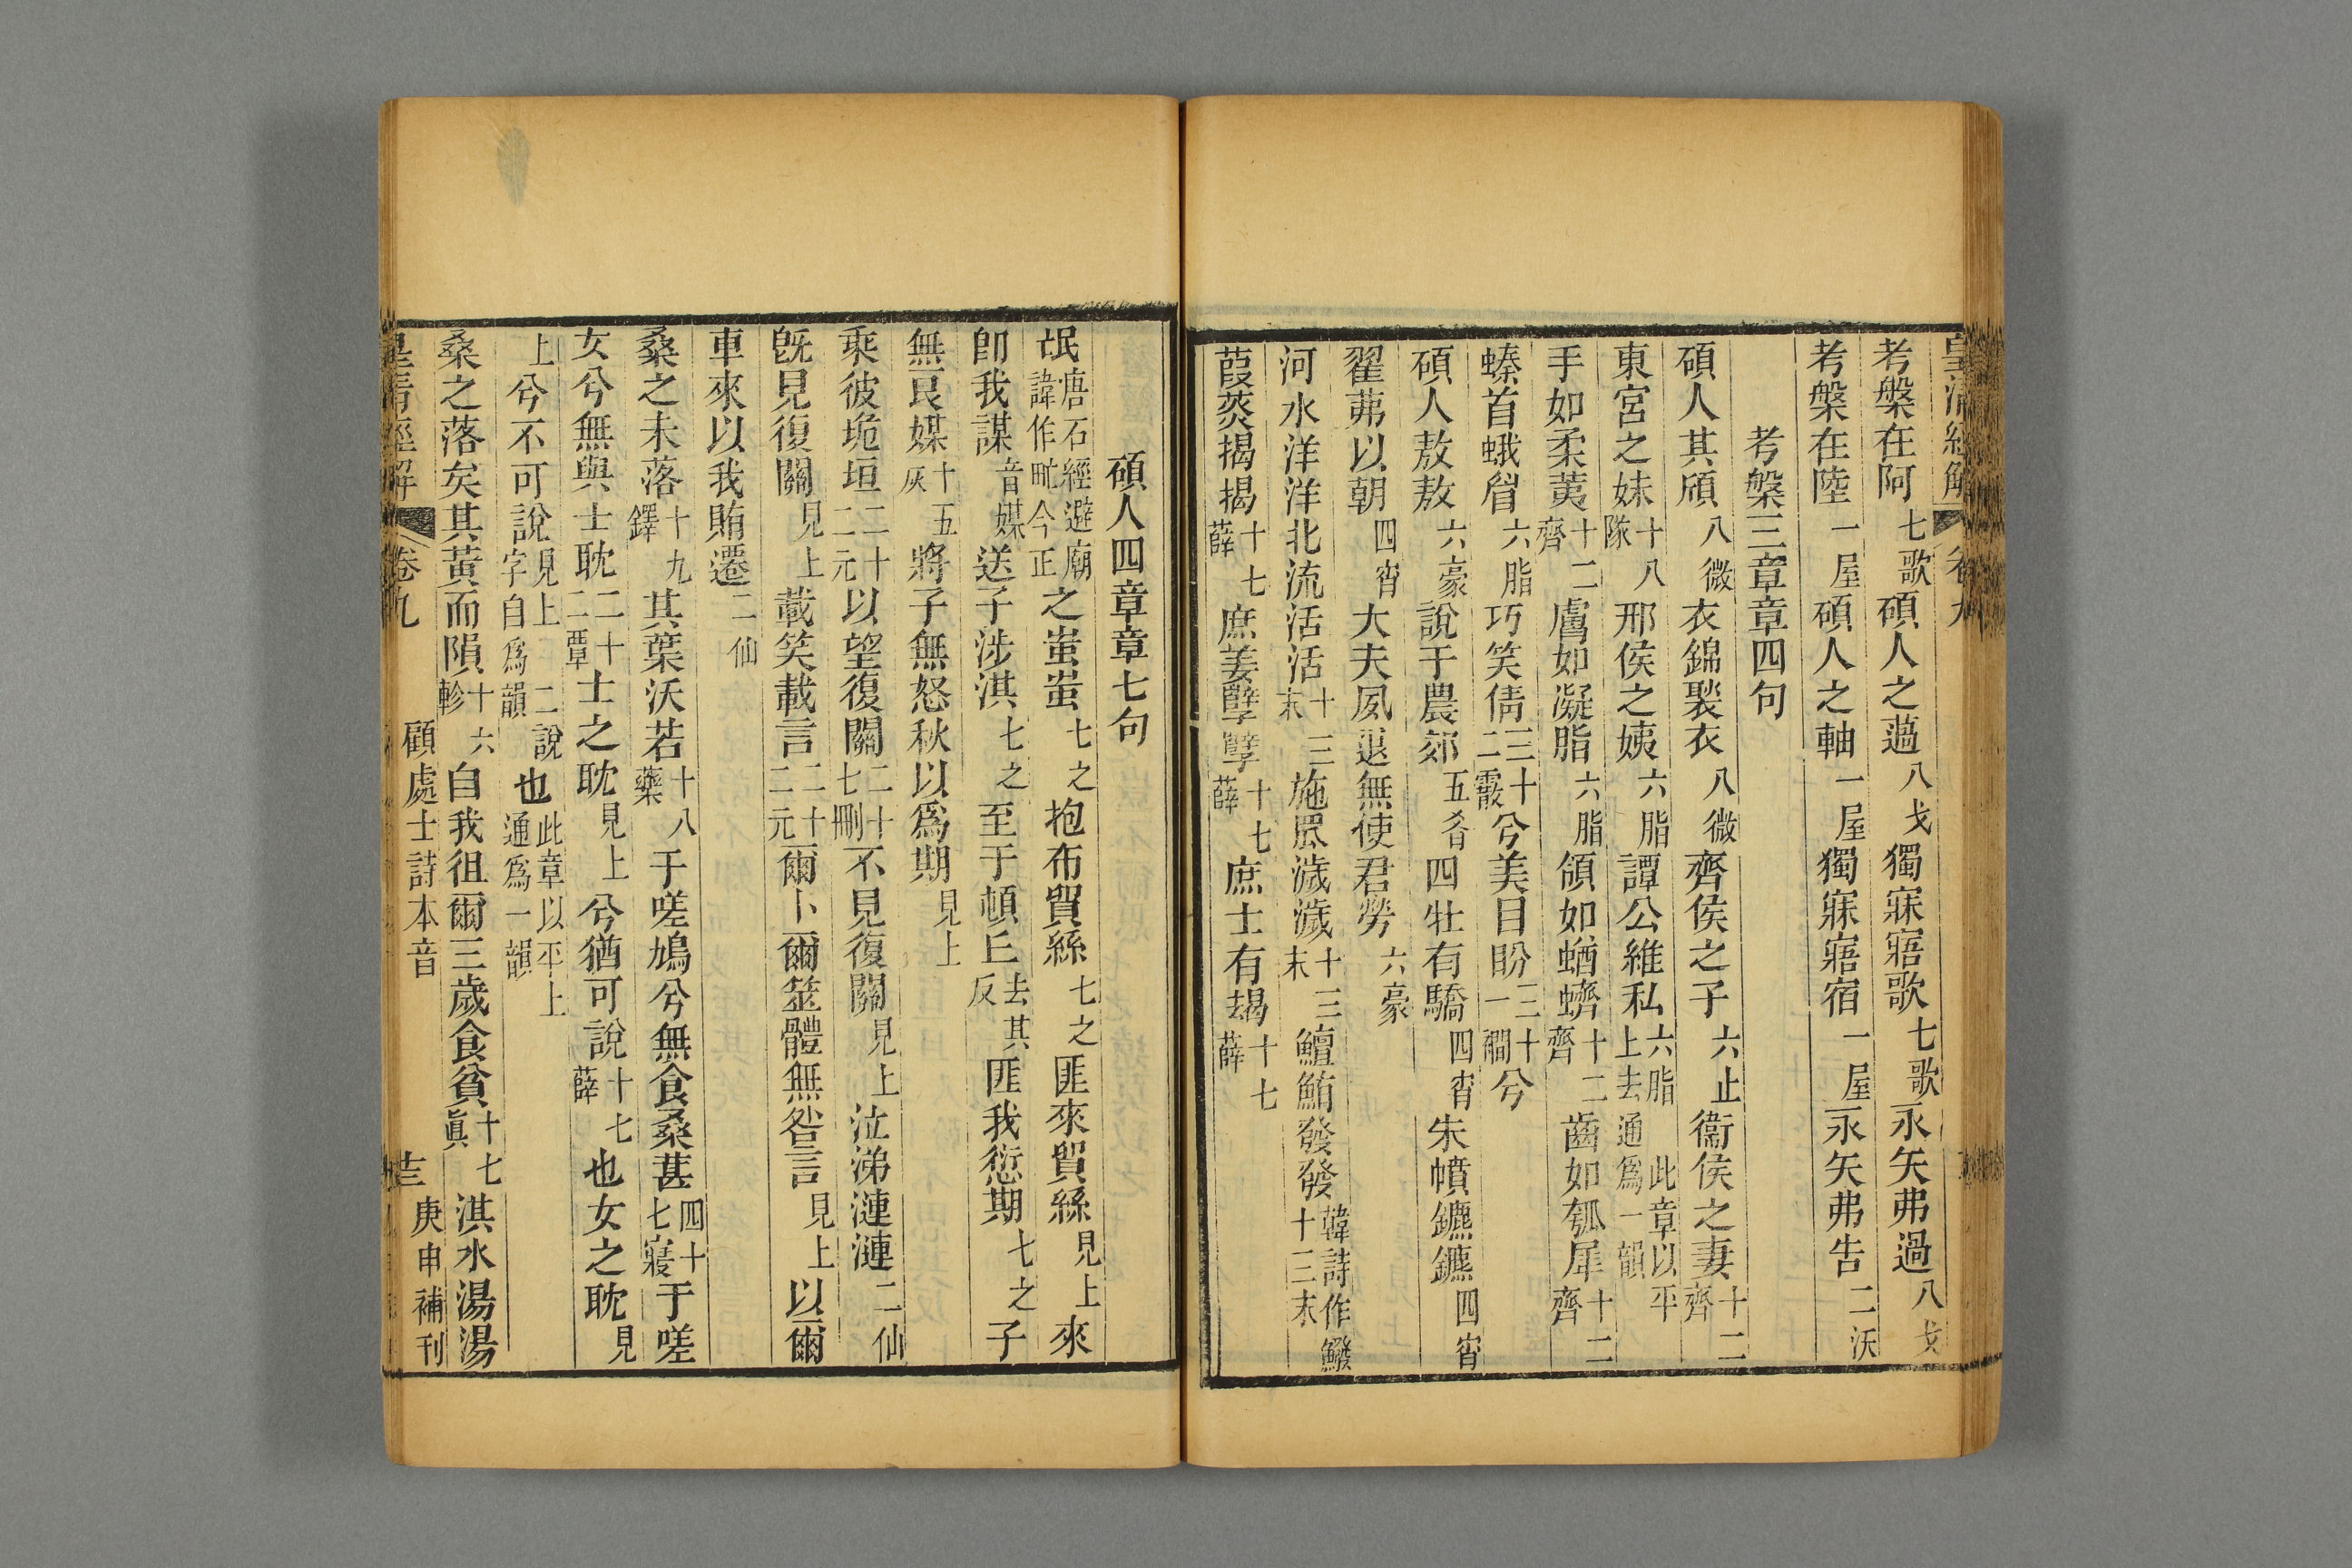 皇清經解
卷九
考槃在阿七歌碩人之薖八戈獨寐寤歌七歌永矢弗過八戈
考槃在陸一屋碩人之軸一屋獨寐寤宿一屋永矢弗告二沃
考槃三章章四句
碩人其頎八微衣錦褧衣八微齊侯之子六止衞侯之妻十二齊
東宮之妹十八隊邢侯之姨六脂譚公維私六脂此章以平上去通爲一韻
手如柔荑十二齊膚如凝脂六脂領如蝤蠐十二齊齒如瓠犀十二齊
螓首蛾眉六脂巧笑倩三十二霰兮美目盼三十一襇兮
碩人敖敖六豪說于農郊五肴四牡有驕四宵朱幩鑣鑣四宵
翟茀以朝四宵大夫夙退無使君勞六豪
河水洋洋北流活活十三末施罛濊濊十三末鱣鮪發發韓詩作鱍十三末
葭菼揭揭十七薛庶姜孼孼十七薛庶士有朅十七薛
碩人四章章七句
氓唐石經避廟諱作甿今正之蚩蚩七之抱布貿絲七之匪來貿絲見上來
卽我謀音媒送子涉淇七之至于頓丘去其反匪我愆期七之子
無良媒十五灰將子無怒秋以爲期見上
乘彼垝垣二十二元以望復關二十七刪不見復關見上泣涕漣漣二仙
旣見復關見上載笑載言二十二元爾卜爾筮體無咎言見上以爾
車來以我賄遷二仙
桑之未落十九鐸其葉沃若十八藥于嗟鳩兮無食桑葚四十七寢于嗟
女兮無與士耽二十二覃士之耽見上兮猶可說十七薛也女之耽見
上兮不可說見上二說字自爲韻也此章以平上通爲一韻
桑之落矣其黃而隕十六軫自我徂爾三歲食貧十七眞淇水湯湯
皇清經解
卷九
顧處士詩本音
庚申補刊